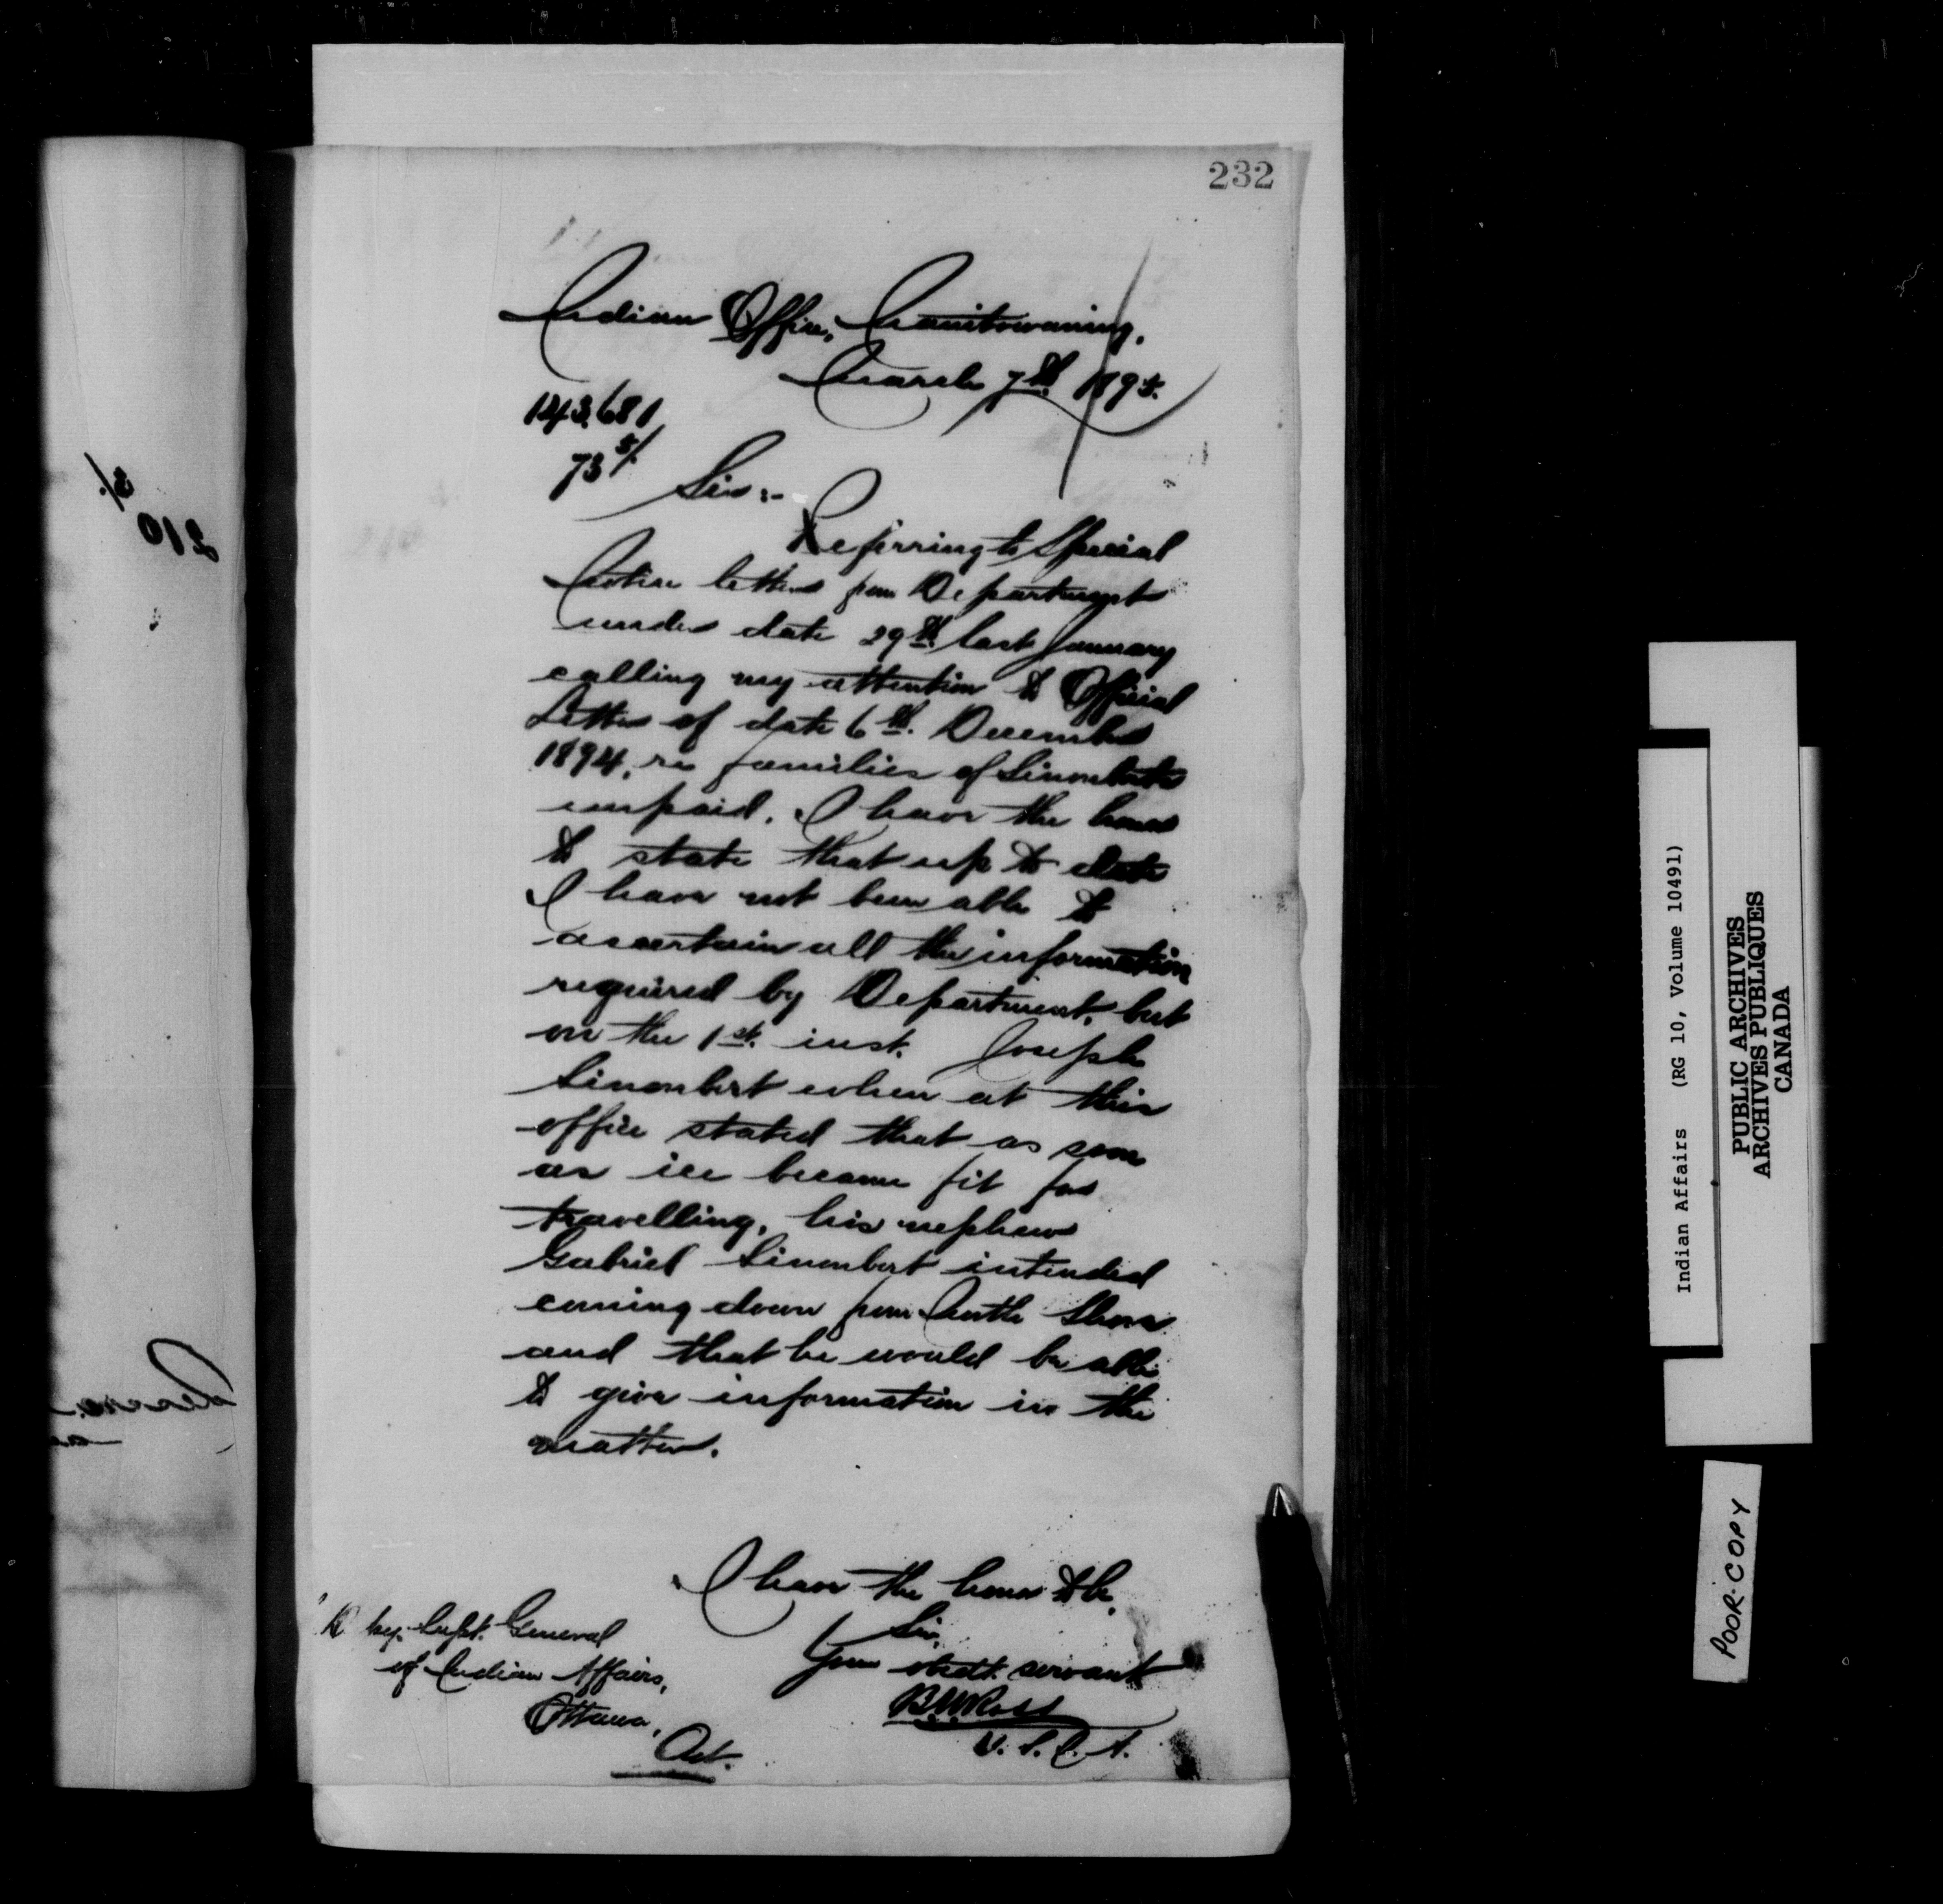 232
Indian Office, Manitowaning,
March 7th 1895.
143,681
73 5/.
Sir:-
Referring to Special
Notice letter from Department
under date 29th. last January
calling my attention to Official
Letter of date 6th. December
1894, re families of Simonbert
unpaid. I have the honor
to state that up to date
I have not been able to
ascertain all the information
required by Department, but
on the 1st. inst. Joseph
Simonbert when at this
office stated that as soon
as ice became fit for
travelling, his nephew
Gabriel Simonbert intended
coming down from North Shore
and that he would be able
to give information in the
matter.
I have the honor to be,
Sir,
Your obedt. servant
B.W. Ross
V. S. I. A.
Dey. Supt. General
of Indian Affairs,
Ottawa,
Ont.
210
Indian Affairs (RG 10, Volume 10491)
PUBLIC ARCHIVES
ARCHIVES PUBLIQUES
CANADA
POOR COPY